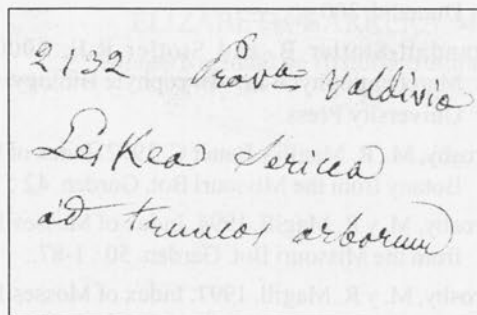 2132 Prov.ª Valdivia
Leskea sericea
ad truncos arborum